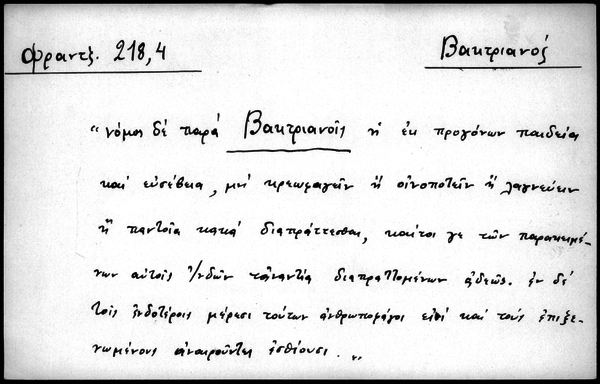 Φραντζ. 218,4
Βακτριανός
"νόμος δέ παρά Βακτριανοῖς ἡ ἐκ προγόνων παιδεία
καί εὐσέβεια, μή κρεωφαγεῖν ἤ οἰνοποτεῖν ἤ λαγνεύειν
ἤ παντοῖα κακά διαπράττεσθαι, καίτοι γε τῶν παρακειμέ-
νων αὐτοῖς Ἰνδῶν τἀναντία διαπραττομένων ἀδεῶς. ἐν δέ
τοῖς ἐνδοτέροις μέρεσι τούτων ἀνθρωποφάγοι εἰσί καί τούς ἐπιξε-
νωμένους ἀναιροῦντες ἐσθίουσι . "